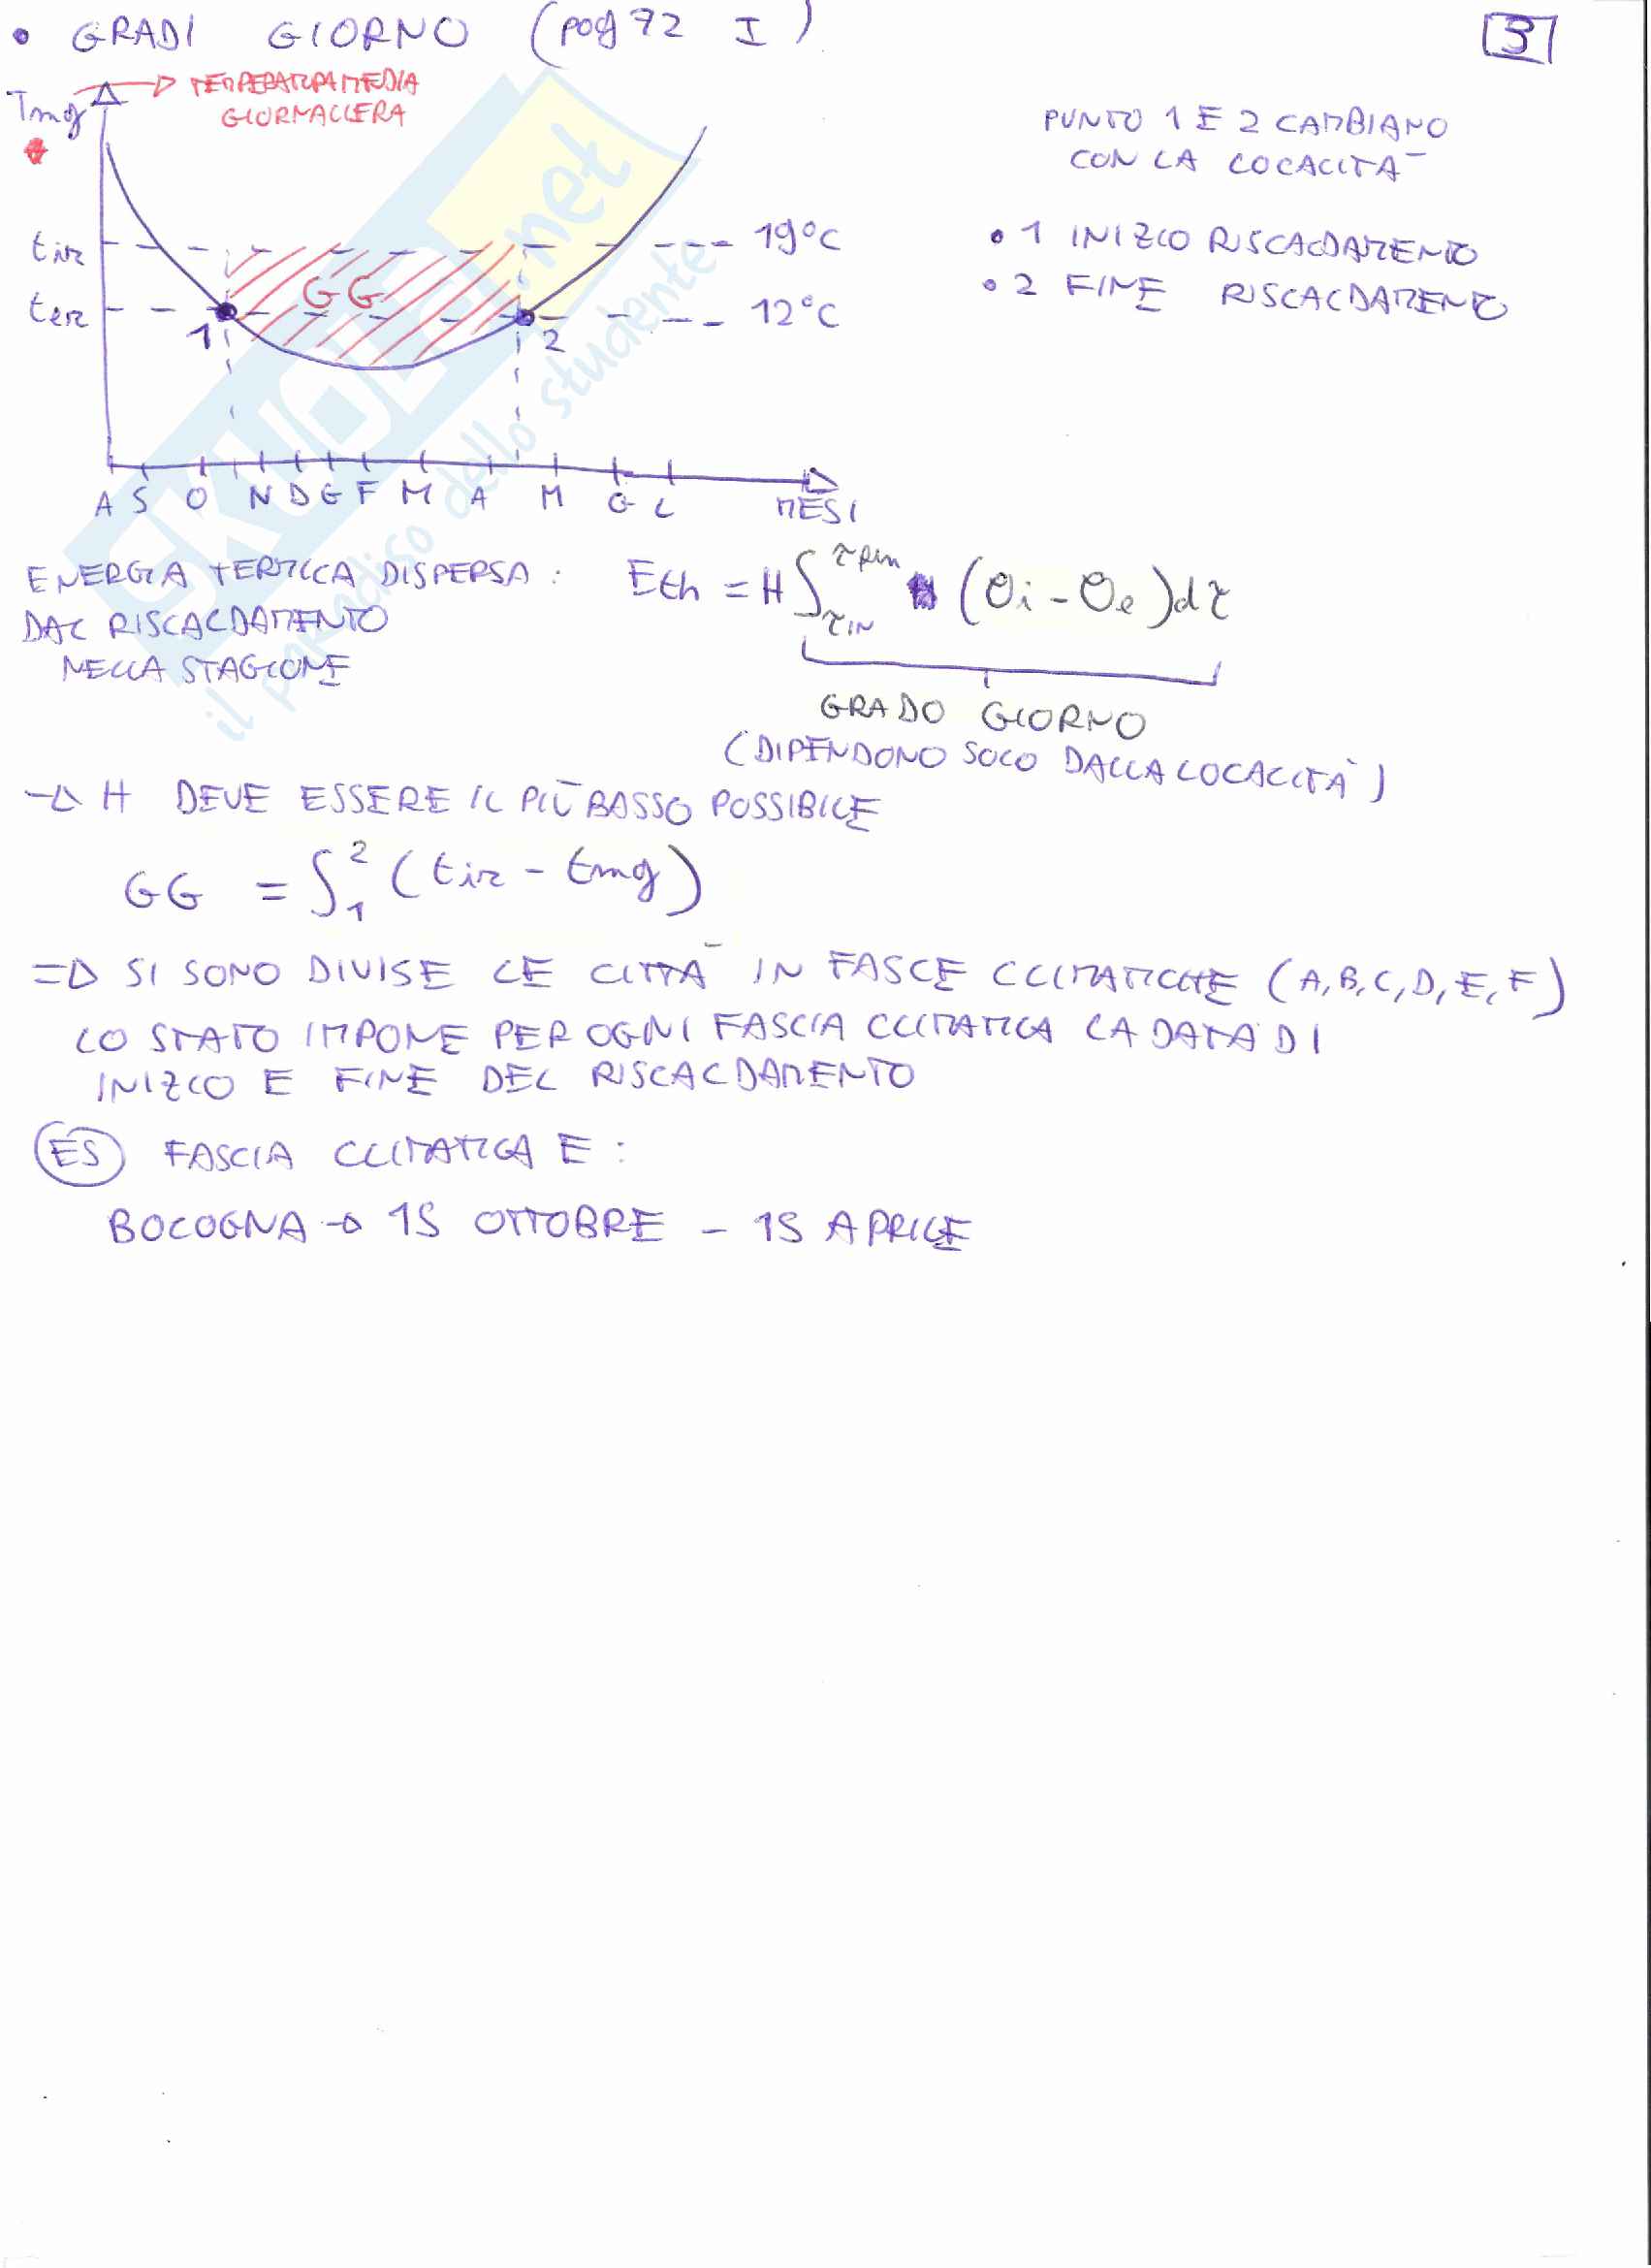 • GRADI GIORNO (pag 72 I)
3
Tmg
TEMPERATURA MEDIA
GIORNALIERA
PUNTO 1 E 2 CAMBIANO
CON LA LOCALITÀ
• 1 INIZIO RISCALDAMENTO
• 2 FINE RISCALDAMENTO
tir
19°C
GG
ter
12°C
1
2
A S O N D G F M A M G L
MESI
SKUOLA.net
il paradiso dello studente
ENERGIA TERMICA DISPERSA :
DAL RISCALDAMENTO
NELLA STAGIONE
Eth = H ∫ τIN τfin (θi - θe) dτ
GRADO GIORNO
(DIPENDONO SOLO DALLA LOCALITÀ)
→ H DEVE ESSERE IL PIÙ BASSO POSSIBILE
GG = ∫₁² (tir - tmg)
⇒ SI SONO DIVISE LE CITTÀ IN FASCE CLIMATICHE (A, B, C, D, E, F)
LO STATO IMPONE PER OGNI FASCIA CLIMATICA LA DATA DI
INIZIO E FINE DEL RISCALDAMENTO
ES FASCIA CLIMATICA E :
BOLOGNA → 15 OTTOBRE - 15 APRILE